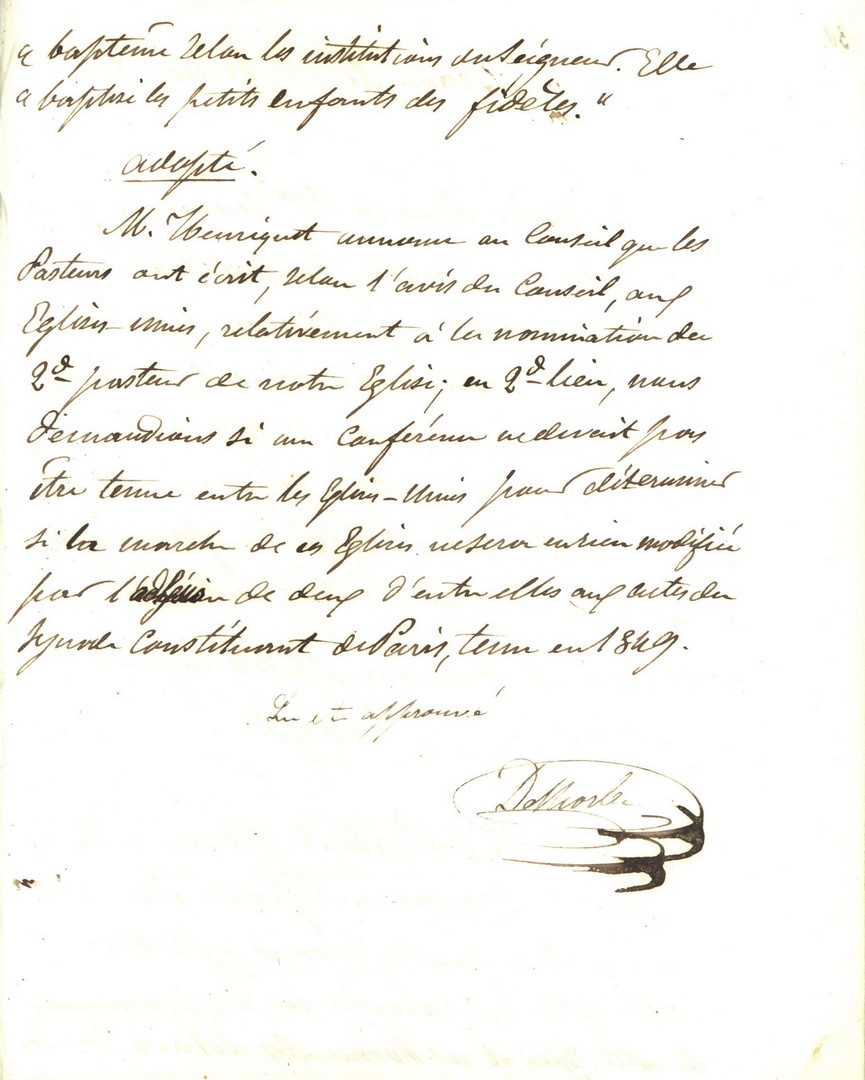 le baptême selon les institutions du Seigneur. Elle
a baptisé les petits enfants des fidèles."
adopté.
M. Henriquet annonce au Conseil que les
Pasteurs ont écrit, selon l'avis du Conseil, aux
Eglises-unies, relativement à la nomination du
2d pasteur de notre Eglise; en 2d lieu, nous
demandions si une conférence ne devrait pas
être tenue entre les Eglises-Unies pour déterminer
si la marche de ces Eglises ne sera en rien modifiée
par l'adhésion de deux d'entre elles aux actes du
Synode Constituant de Paris, tenu en 1849.
Lu et approuvé